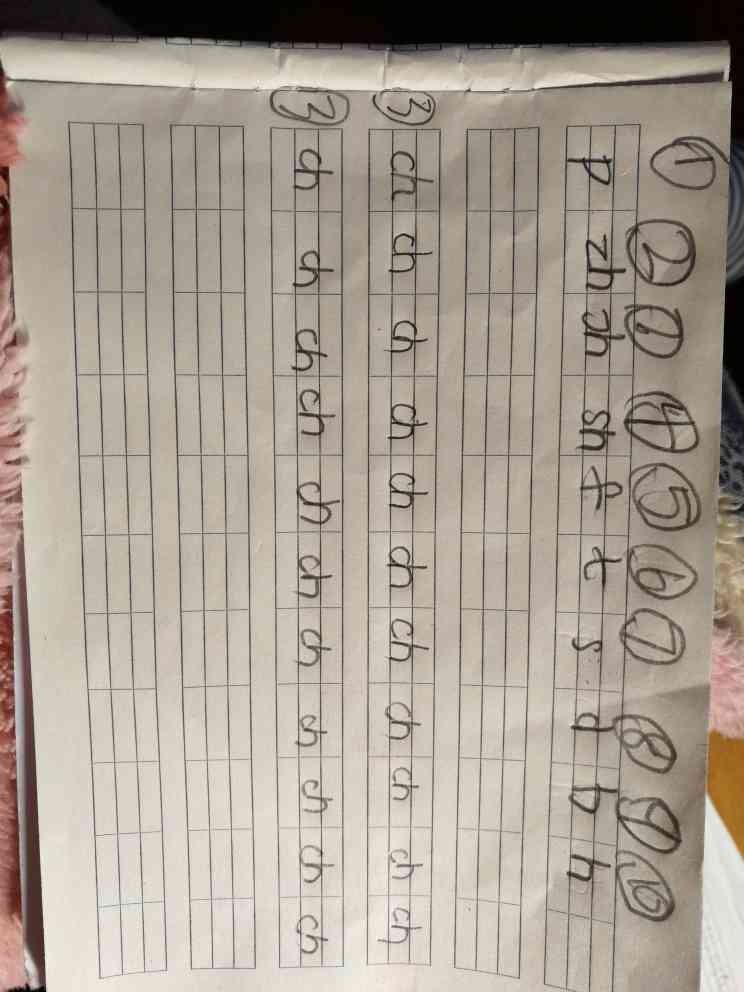 ① ② ① ④ ⑤ ⑥ ⑦ ⑧ ⑨ ⑩
p zh ch sh f t s d b h
③ ch ch ch ch ch ch ch ch ch ch ch
③ ch ch ch ch ch ch ch ch ch ch ch